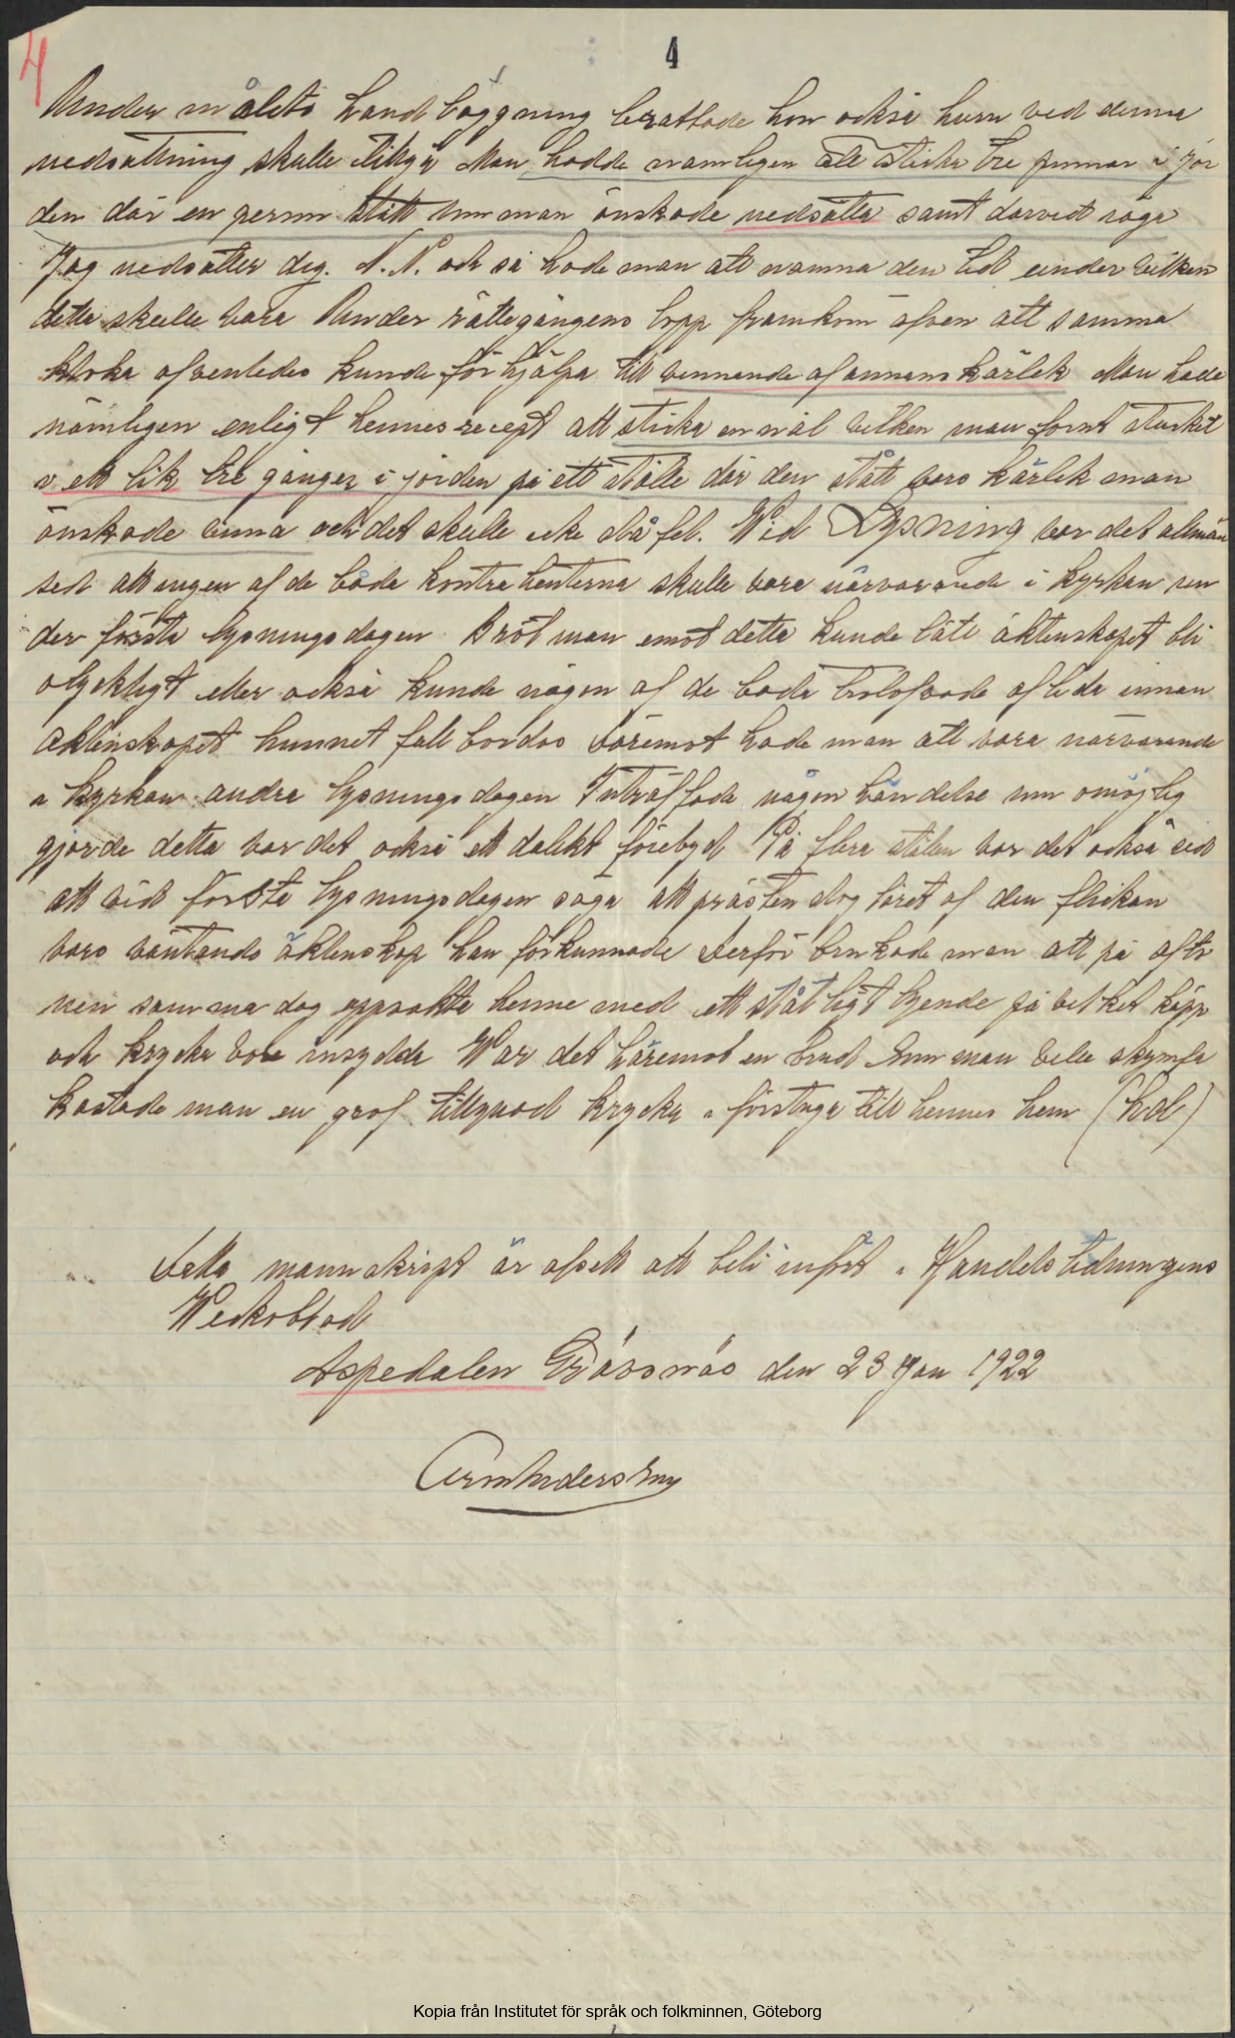 4
4
Under målets handläggning berättade hon också huru ved denna
nedsättning skulle tillgå Man hadde namligen att sticka tre pinnar i jor
den där en person stått som man önskade nedsätta samt darved säga
Jag nedsätter dig. N. N. och så hade man att namna den tid under vilken
detta skulle vara Under rättegångens lopp framkom äfven att samma
kloka afvenledes kunde förhjälpa till vinnande af annans kärlek Man hade
nämligen enligt hennes recept att sticka en nål vilken man forut stuckit
i ett lik tre gånger i jorden på ett ställe där den stått vars kärlek man
önskade vinna och det skulle icke slå fel. Wid Lysning var det allmän
sed att ingen af de båda kontrahenterna skulle vara närvarande i kyrkan un
der första lysningsdagen Bröt man emot detta kunde läte äktenskapet bli
olyckligt eller också kunde någon af de bada trolofvade aflida innan
aktenskapet hunnet fullbordas Däremot hade man att vara närvarande
i kyrkan andra lysningsdagen Inträffade någon händelse som omöjlig
gjorde detta var det också ett dåligt förebud På flera ställen var det också sed
att vid första lysningsdagen säga att prästen dog låret af den flickan
vars väntande äktenskap han förkunnade Derför brukade man att på afto
nen samma dag uppsökte henne med ett ståtligt hyende på vilket käpp
och krycka vore insydda War det häremot en brud som man ville skymfa
kastade man en grof tillyxad krycka i förstuga till hennes hem (hd)
Detta mannskript är afsett att bli infört i Handelstidningens
Weckoblad
Aspedalen Grässnäs den 23 Jan 1922
Kopia från Institutet för språk och folkminnen, Göteborg